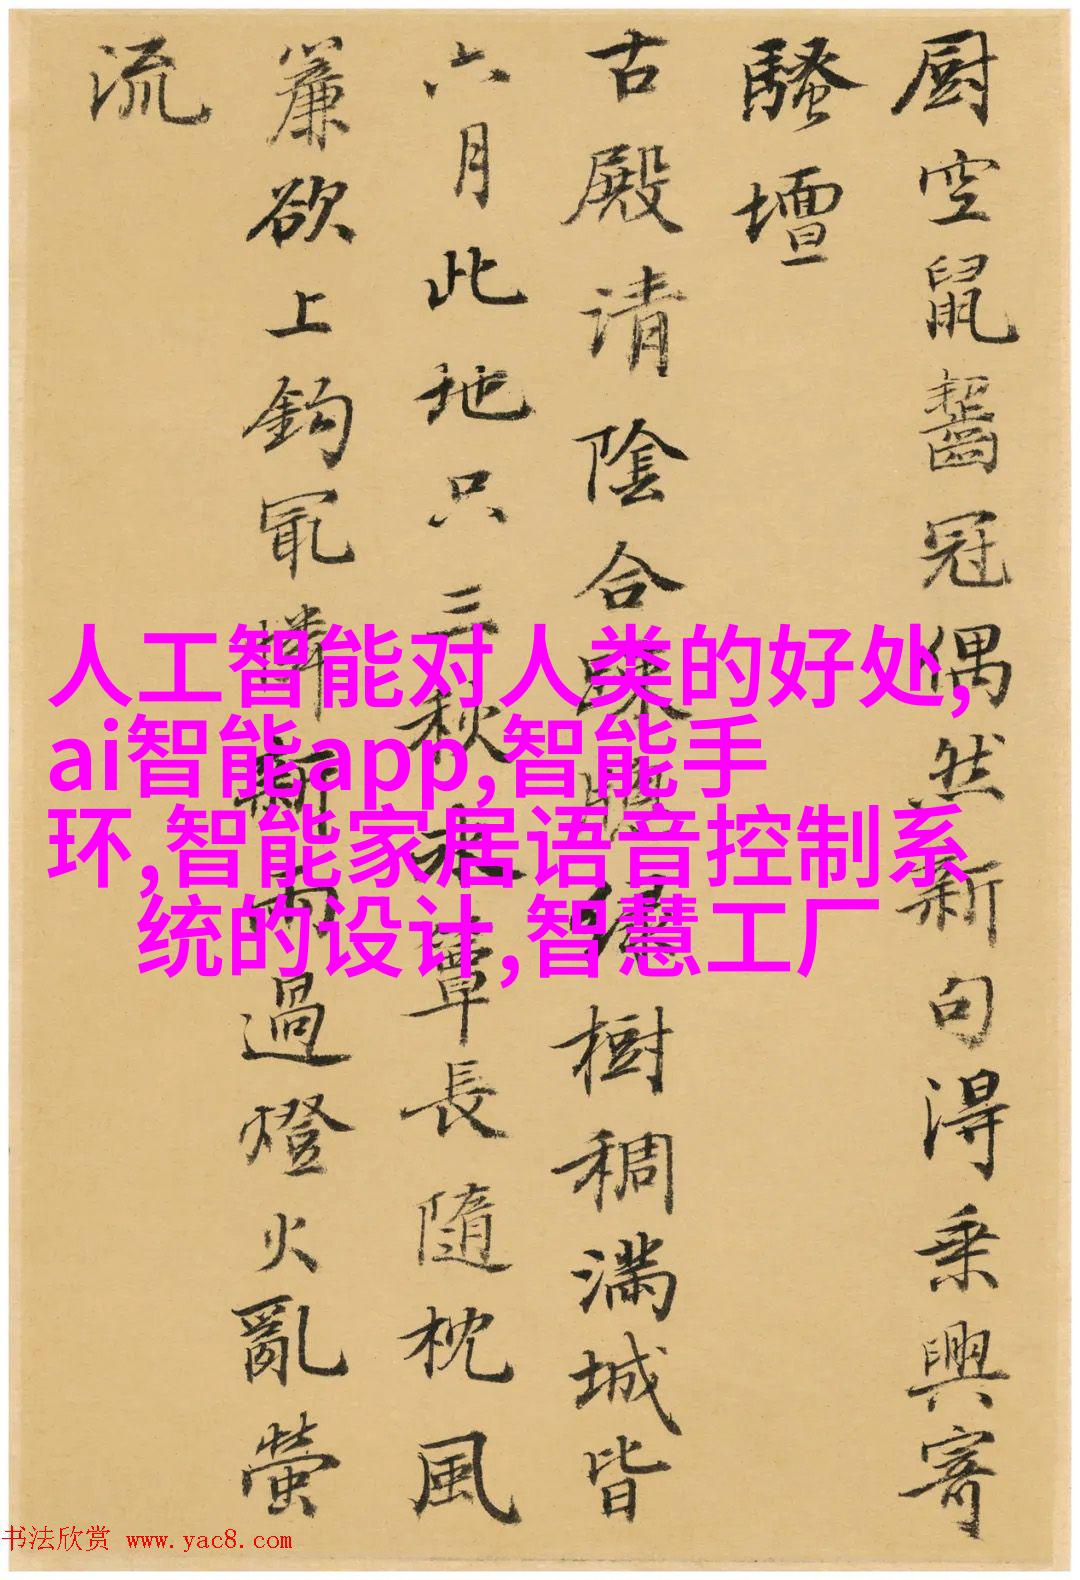 厨空鼠齧冠偶然新句得乗興寄
騷壇
古殿请陰合疎簷優樹稠满城皆
六月此地只三秋水簟長隨枕風
簾欲上鈎冣憐新雨過燈火亂螢
流
人工智能对人类的好处,
ai智能app,智能手
环,智能家居语音控制系
统的设计,智慧工厂
书法欣赏 www.yac8.com